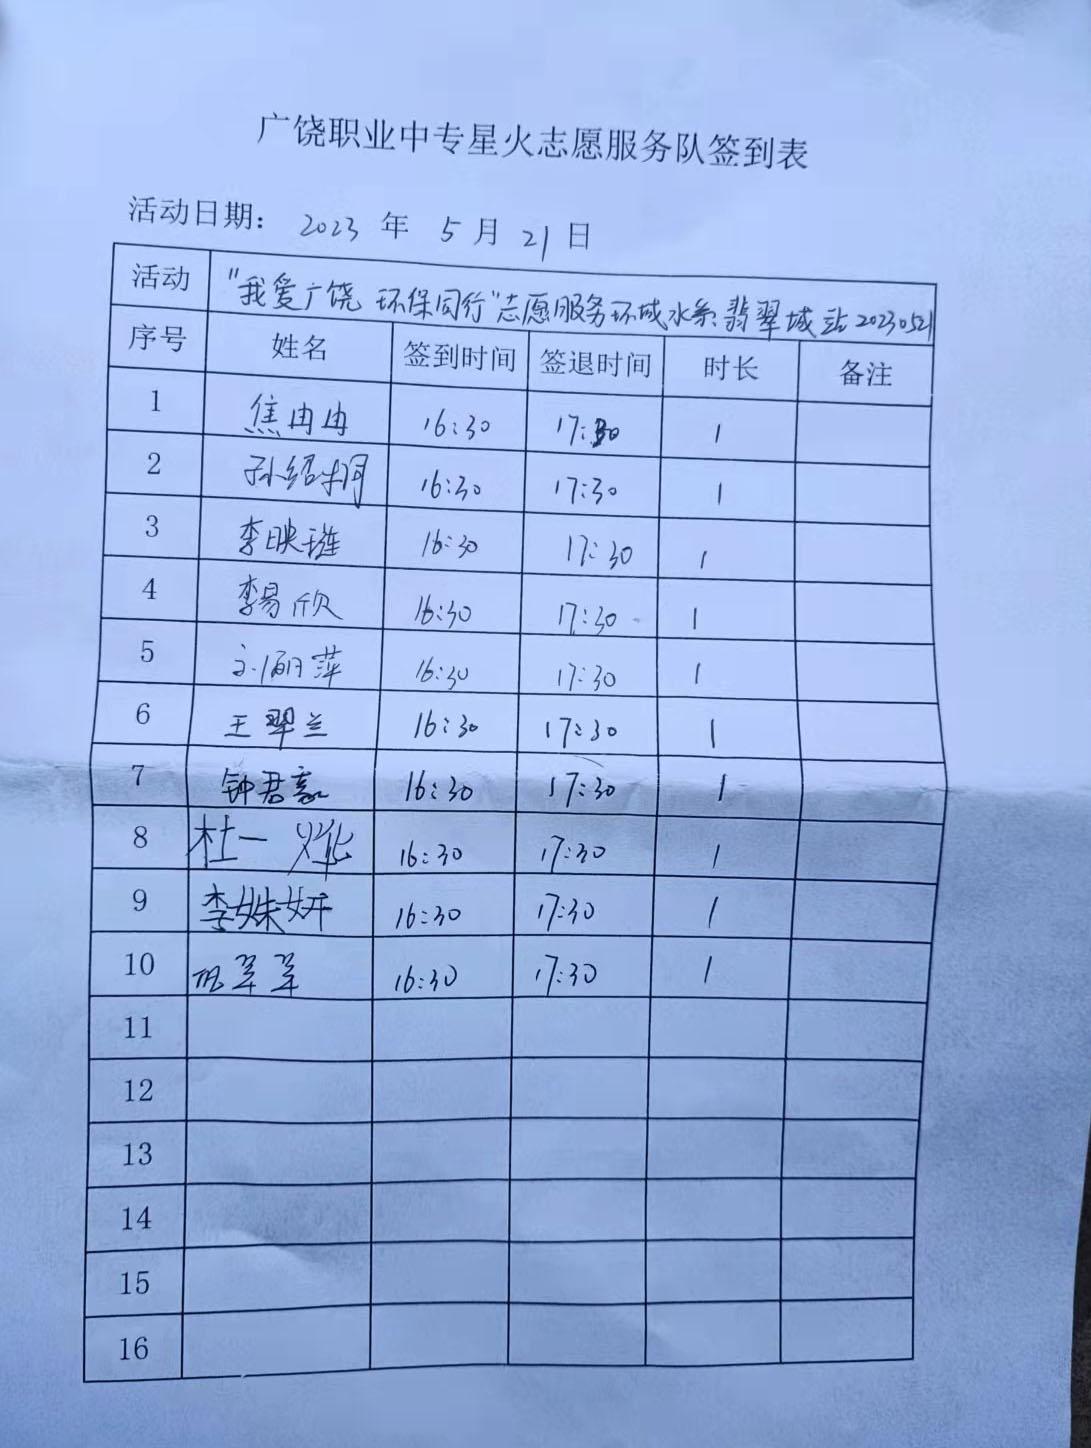 广饶职业中专星火志愿服务队签到表
活动日期： 2023 年 5 月 21 日
活动 "我爱广饶 环保同行"志愿服务环城水系翡翠城站20230521
序号 姓名 签到时间 签退时间 时长 备注
1 焦冉冉 16:30 17:30 1
2 孙绍桐 16:30 17:30 1
3 李映璀 16:30 17:30 1
4 李易欣 16:30 17:30 1
5 16:30 17:30 1
6 王翠兰 16:30 17:30 1
7 钟君豪 16:30 17:30 1
8 杜一烨 16:30 17:30 1
9 李姝妍 16:30 17:30 1
10 16:30 17:30 1
11
12
13
14
15
16